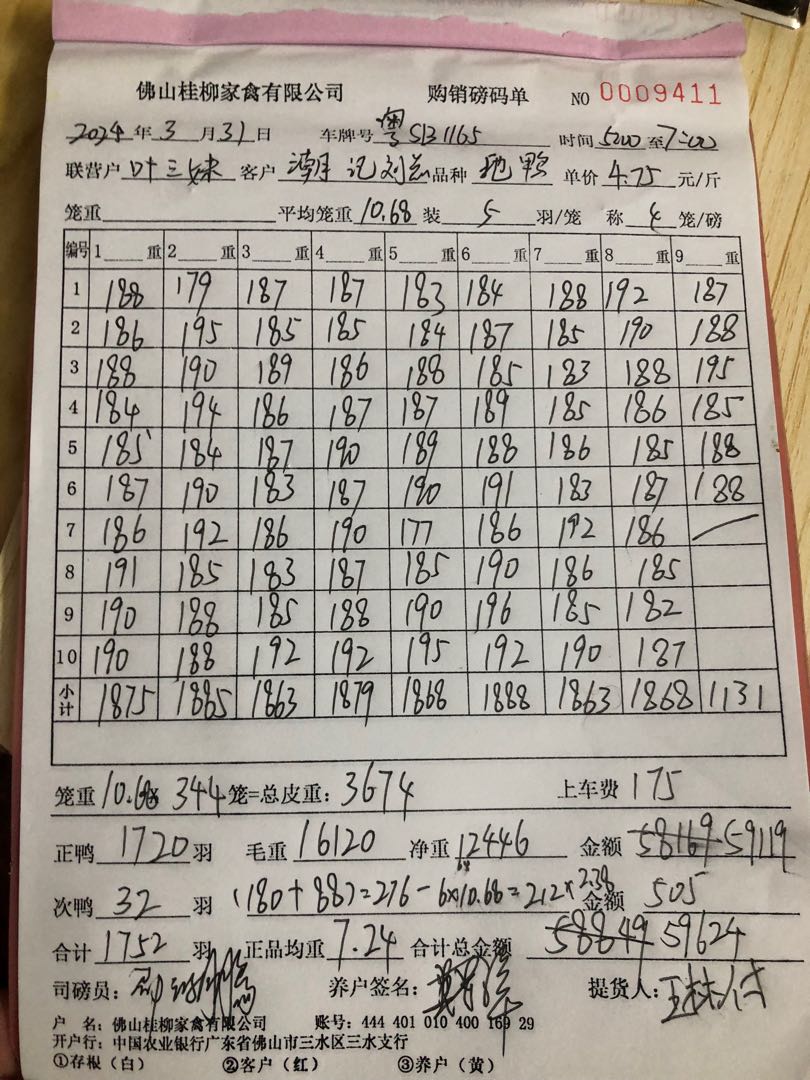 佛山桂柳家禽有限公司 购销磅码单 NO 0009411
2024年3月31日 车牌号 粤S131165 时间 5:00至7:00
联营户 叶三妹 客户 潮记刘总 品种 地鸭 单价 4.75 元/斤
笼重 平均笼重 10.68 装 5 羽/笼 称 4 笼/磅
编号 1 重 2 重 3 重 4 重 5 重 6 重 7 重 8 重 9 重
1 188 179 187 187 183 184 188 192 187
2 186 195 185 185 184 187 185 190 188
3 188 190 189 186 188 185 183 188 195
4 184 194 186 187 187 189 185 186 185
5 185 184 187 190 189 188 186 185 188
6 187 190 183 187 190 191 183 187 188
7 186 192 186 190 177 186 192 186
8 191 185 183 187 185 190 186 185
9 190 188 185 188 190 196 185 182
10 190 188 192 192 195 192 190 187
小计 1875 1885 1863 1879 1868 1888 1863 1868 1131
笼重 10.68 344 笼=总皮重: 3674 上车费 175
正鸭 1720 羽 毛重 16120 净重 12446 金额 58169 59119
次鸭 32 羽 (180+88)=276-6×10.68=212×2.38 金额 505
合计 1752 羽 正品均重 7.24 合计总金额 58849 59624
司磅员: 养户签名: 提货人:
户 名: 佛山桂柳家禽有限公司 账号: 444 401 010 400 169 29
开户行: 中国农业银行广东省佛山市三水区三水支行
①存根(白) ②客户(红) ③养户(黄)